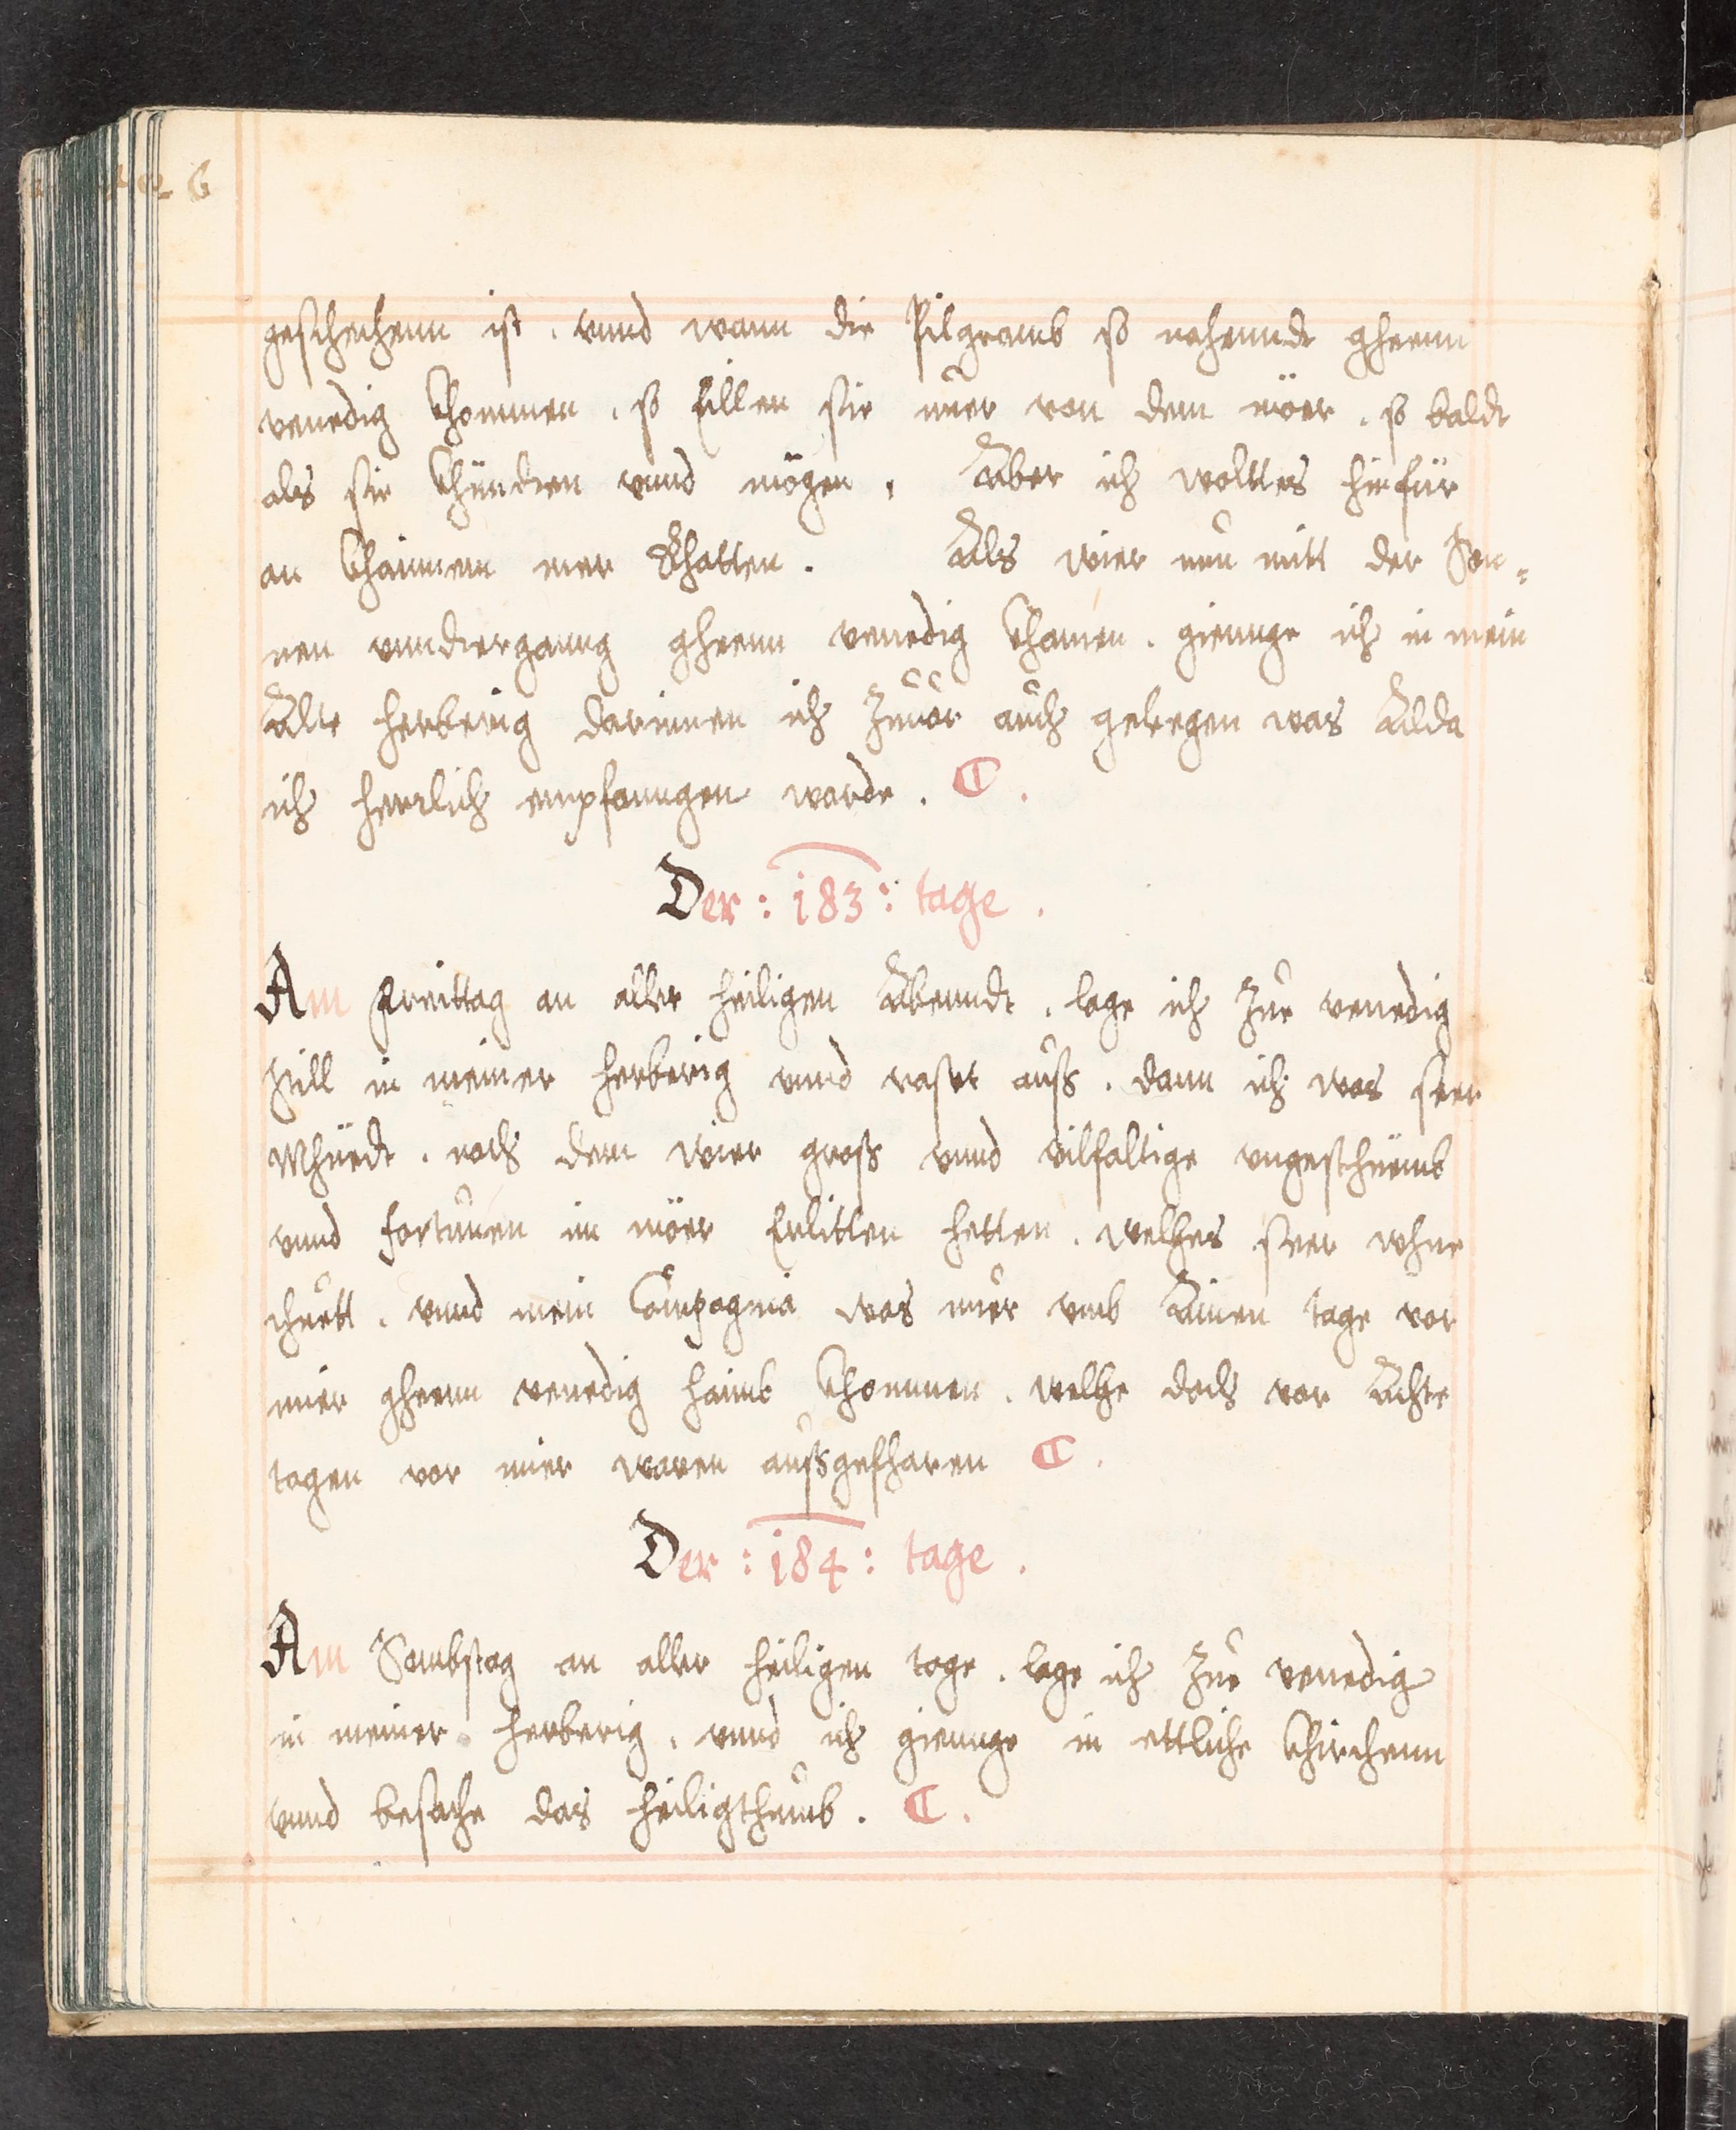 geschechenn ist . vnnd wann die Pilgramb so nahenndt gheenn
venedig khommen . so Eillen sie nuer von dem möer . so baldt
als sie khündten vnnd mögen . Aber ich wolttes hinfür
an khainnem mer Rhatten . Als wier nun mitt der Son-
nen vnndterganng gheenn venedig khamen . gienge ich in mein
Alte herberig darinnen ich Zuuor auch gelegen was Alda
ich herrlich empfanngen warde . C .
Der : 183 : tage .
Am Freittag an aller heiligen Abenndt . lage ich Zue venedig
still in meiner herberig vnnd rastet auß . dann ich was seer
Mhüedt . nach dem wier groß vnnd vilfaltige vngestheümb
vnnd fortunen im möer Erlitten hetten . welches seer whee
thuett . vnnd mein Compagnia was nuer vmb Ainen tage vor
mier gheenn venedig hainb khommen . welche doch vor Achte
tagen vor mier waren außgefharen C .
Der : 184 : tage .
Am Sambstag an aller heiligen tage . lage ich Zue venedig
in meiner herberig . vnnd ich gienge in ettliche khirchenn
vnnd besache das heiligthumb . C .